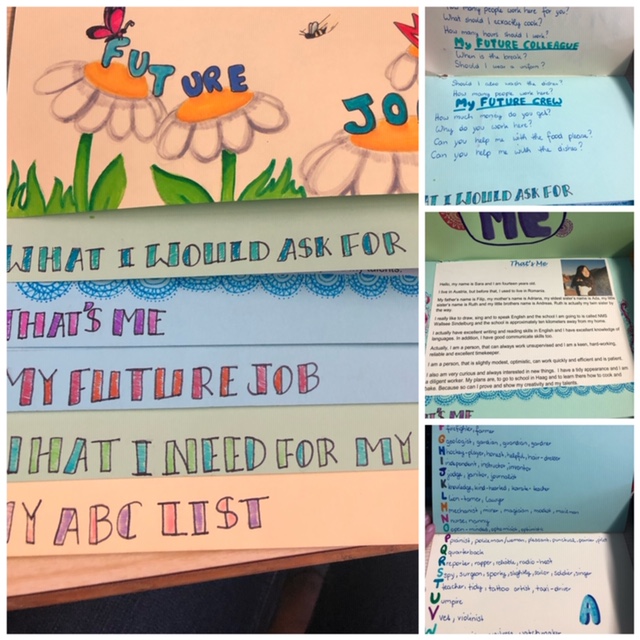 FUTURE
JO
WHAT I WOULD ASK FOR
THAT'S ME
MY FUTURE JOB
WHAT I NEED FOR MY
MY ABC LIST
How many people work here for you?
What should I exactly cook?
How many hours should I work?
My FUTURE COLLEAGUE
When is the break?
Should I wear a uniform?
Should I also wash the dishes?
How many people work here?
My FUTURE CREW
How much money do you get?
Why do you work here?
Can you help me with the food please?
Can you help me with the dishes?
AT I WOULD ASK FOR
ME
That's Me
Hello, my name is Sara and I am fourteen years old.
I live in Austria, but before that, I used to live in Romania.
My father's name is Filip, my mother's name is Adriana, my oldest sister's name is Ada, my little
sister's name is Ruth and my little brothers name is Andreas. Ruth is actually my twin sister by
the way.
I really like to draw, sing and to speak English and the school I am going to is called NMS
Wallsee Sindelburg and the school is approximately ten kilometers away from my home.
I actually have excellent writing and reading skills in English and I have excellent knowledge of
languages. In addition, I have good communicate skills too.
Actually, I am a person, that can always work unsupervised and I am a keen, hard-working,
reliable and excellent timekeeper.
I am a person, that is slightly modest, optimistic, can work quickly and efficient and is patient.
I also am very curious and always interested in new things. I have a tidy appearance and I am
a diligent worker. My plans are, to go to school in Haag and to learn there how to cook and
bake. Because so I can prove and show my creativity and my talents.
T'S ME
F firefighter, farmer
G geologist, guardian, gardner
H hockey-player, honest, helpful, hair-dresser
I independent, instructor, inventor
J judge, janitor, journalist
K knowledge, kind-hearted, karate-teacher
L lion-tamer, lawyer
M mechanist, miner, magician, model, mailman
N nurse, nanny
O open-minded, optimistic, optician
P pianist, policeman/woman, pleasant, punctual, painter, pilot
Q quarterback
R reporter, rapper, reliable, radio-host
S spy, surgeon, sporty, sailor, soldier, singer
T teacher, tidy, tattoo artist, taxi-driver
U umpire
V vet, violinist
W
A